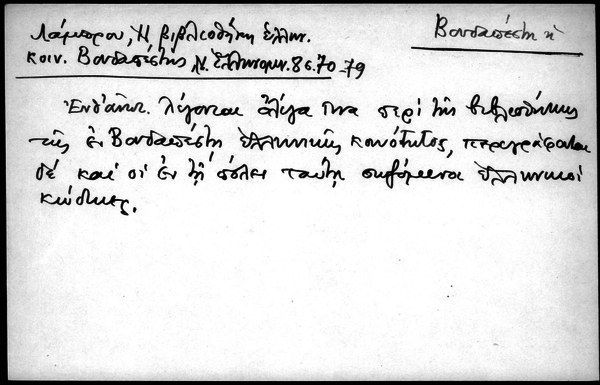 Βουδαπέστη
Λάμπρου, Ἡ βιβλιοθήκη ἑλλην.
κοιν. Βουδαπέστης, Ν. Ἑλληνομν. 8 σ. 70-79
Ἐνταῦθα λέγονται ὀλίγα τινα περὶ τῆς βιβλιοθήκης
τῆς ἐν Βουδαπέστῃ ἑλληνικῆς κοινότητος, περιγράφονται
δέ καί οἱ ἐν τῇ πόλει ταύτῃ σωζόμενοι ἑλληνικοί
κώδικες.